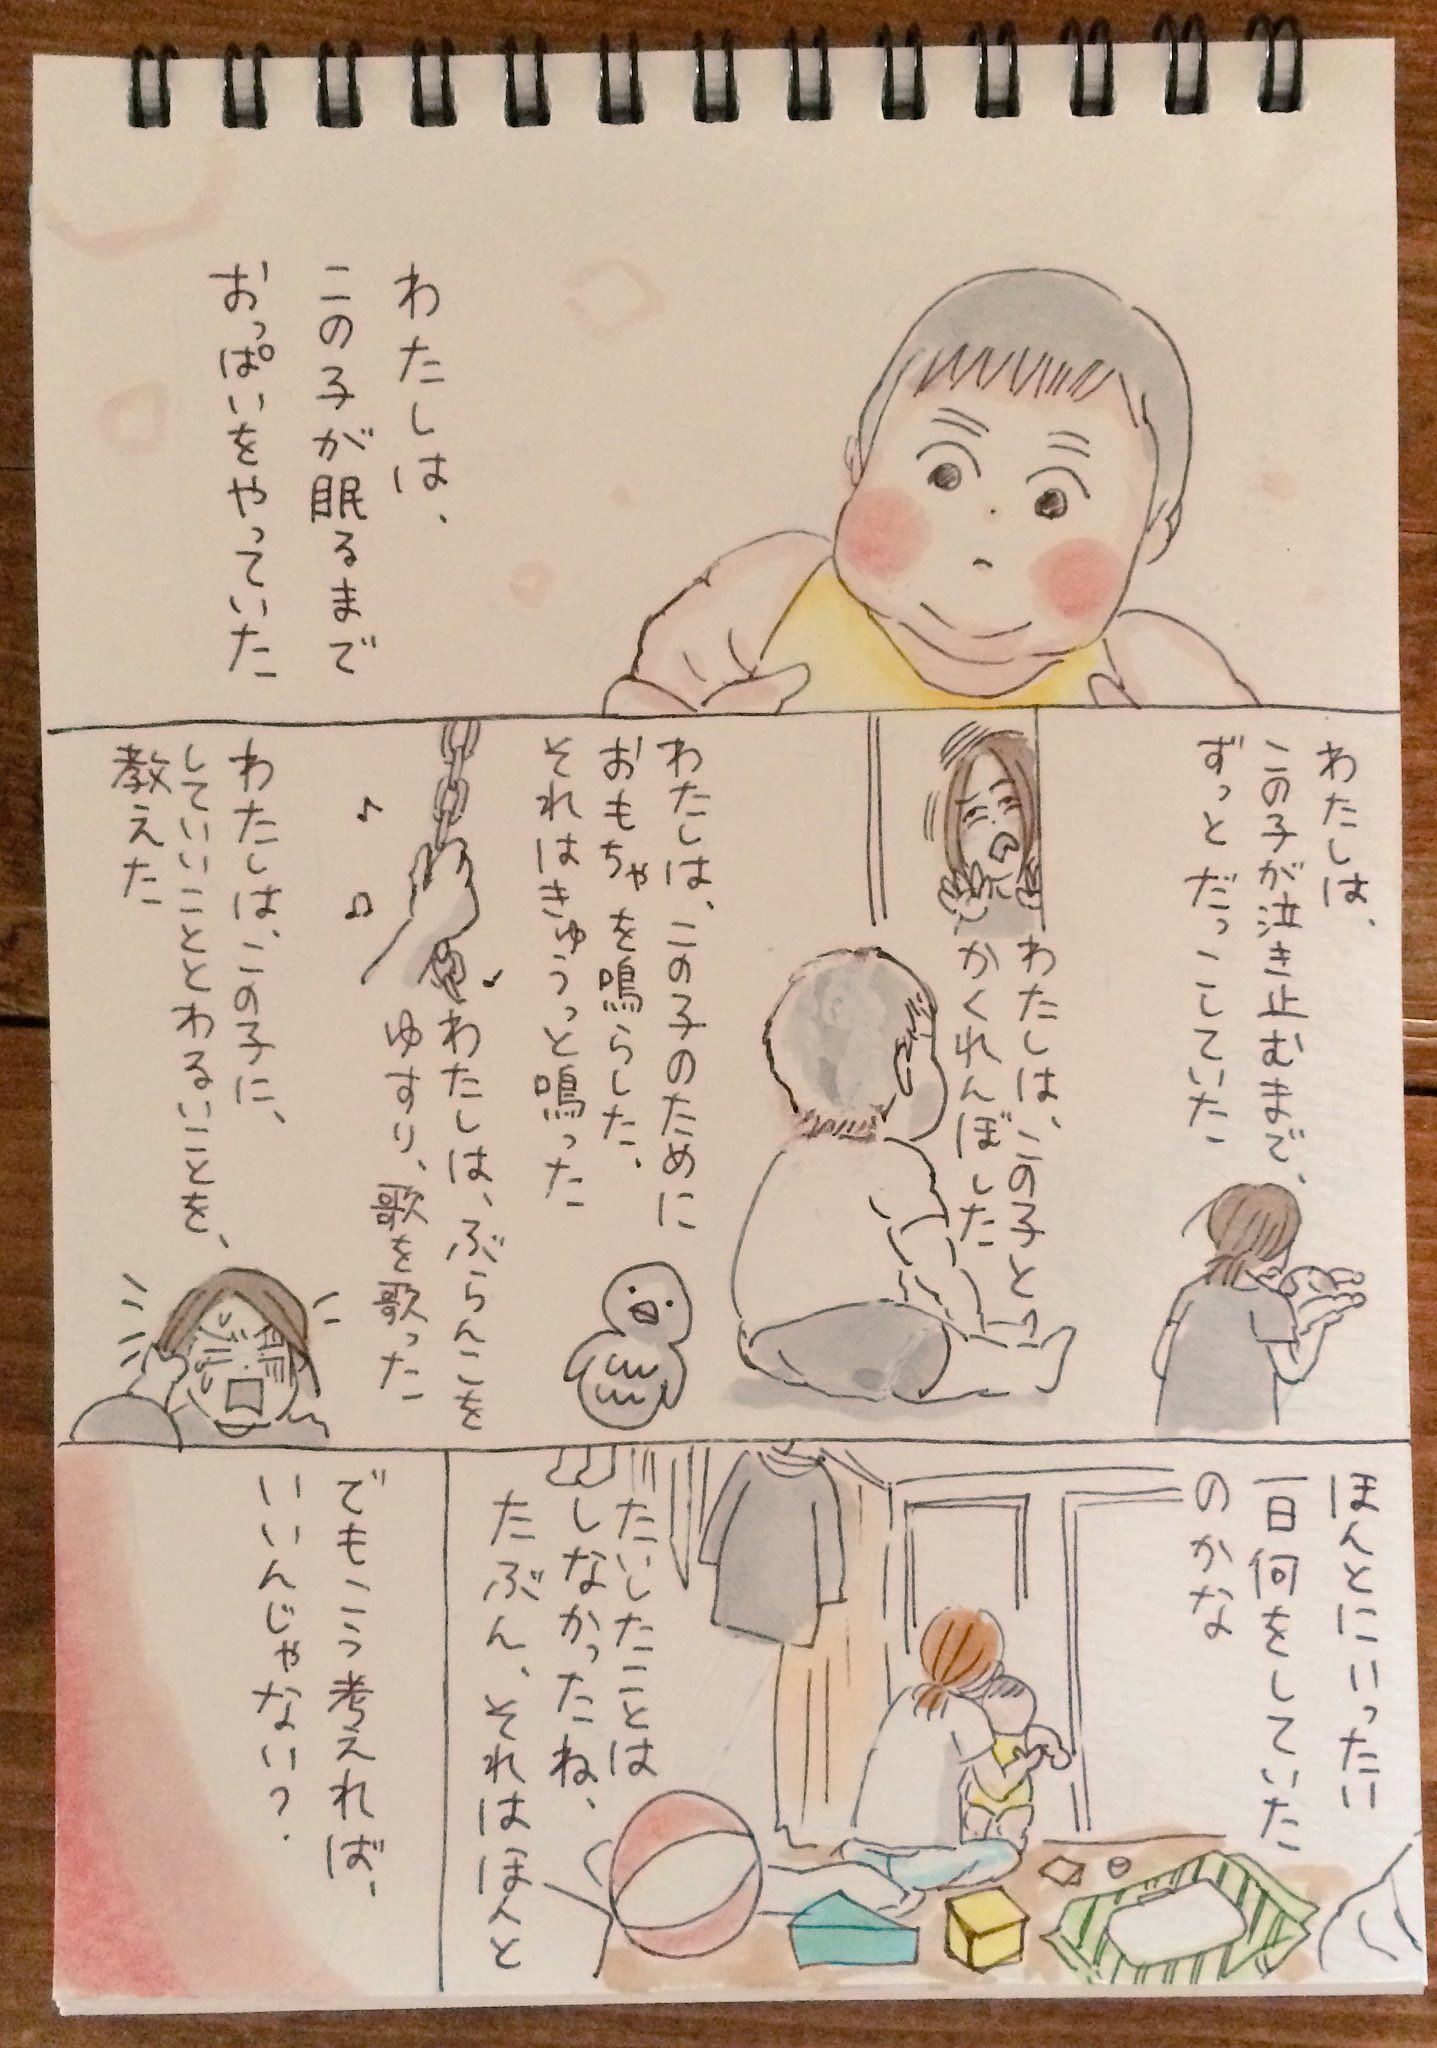 わたしは、
この子が眠るまで
おっぱいをやっていた
わたしは、
この子が泣き止むまで、
ずっとだっこしていた
わたしは、この子と
かくれんぼした
わたしは、この子のために
おもちゃを鳴らした、
それはきゅうっと鳴った
わたしは、ぶらんこを
ゆすり、歌を歌った
わたしは、この子に、
していいこととわるいことを、
教えた
ほんとにいったい
一日何をしていた
のかな
たいしたことは
しなかったね、
たぶん、それはほんと
でもこう考えれば、
いいんじゃない？